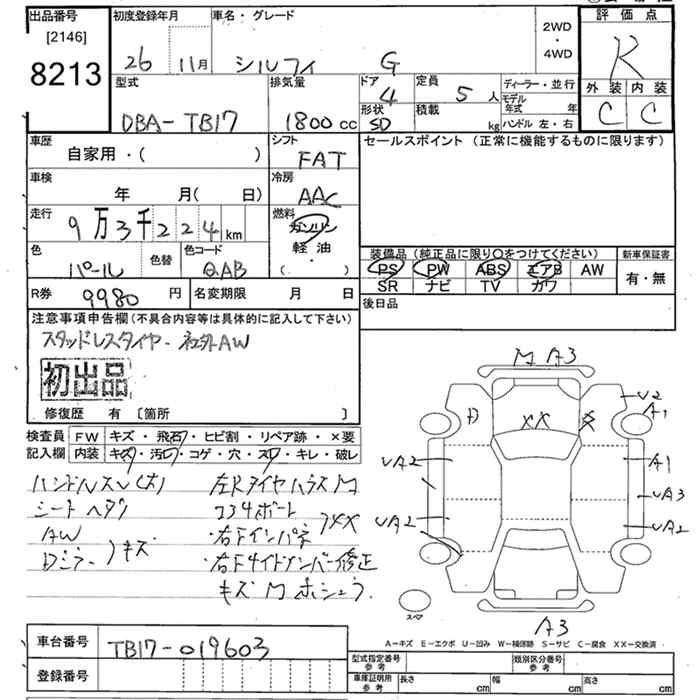 出品番号 初度登録年月 車名・グレード 評価点
[2146] 2WD ・ 4WD
8213 26 11月 シルフィ G R
型式 排気量 ドア 4 定員 5人 ディーラー・並行 外装 内装
モデル年式 年
DBA-TB17 1800cc 形状 SD 積載 kg ハンドル 左・右 C C
車歴 シフト セールスポイント (正常に機能するものに限ります)
自家用・( ) FAT
車検 冷房
年 月(日) AAC
走行 燃料
9万3千224km ガソリン
軽油
色 色替 色コード ( ・ ) 装備品 (純正品に限り○をつけてください) 新車保証書
パール QAB PS PW ABS エアB AW 有・無
R券 9980円 名変期限 月 日 SR ナビ TV カワ
後日品
注意事項申告欄(不具合内容等は具体的に記入して下さい)
スタッドレスタイヤ・社外AW
初出品
修復歴 有 [箇所 ]
M A3
検査員 FW キズ・飛石・ヒビ割・リペア跡・×要
記入欄 内装 キズ・汚レ・コゲ・穴・スレ・キレ・破レ
D XX X U2 A1
ハンドルスレ(大)
シートヘタリ
AW
キズ
UA2 A1
UA3
UA2 UA2
右Fインパネ
キズ M
スペア
A3
A-キズ E-エクボ U-凹み W-補修跡 S-サビ C-腐食 XX-交換済
車台番号 TB17-019603
型式指定番号 参考 類別区分番号 参考
登録番号 車庫証明所 参考 長さ cm 幅 cm 高さ cm